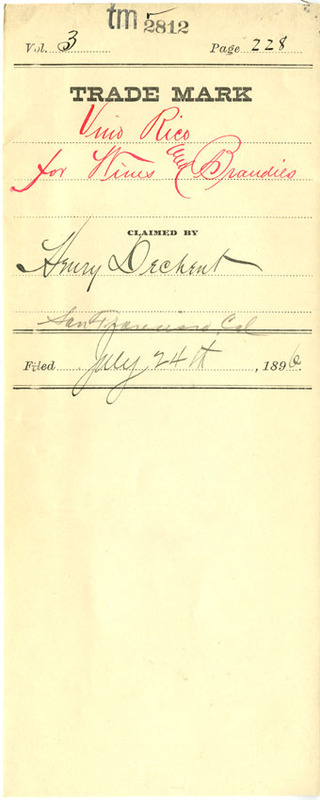 tm 2812
Vol. 3 Page 228
TRADE MARK
Vino Rico
for Wines and Brandies
CLAIMED BY
Henry Dechent
San Francisco, Cal
Filed July 24th, 1896.